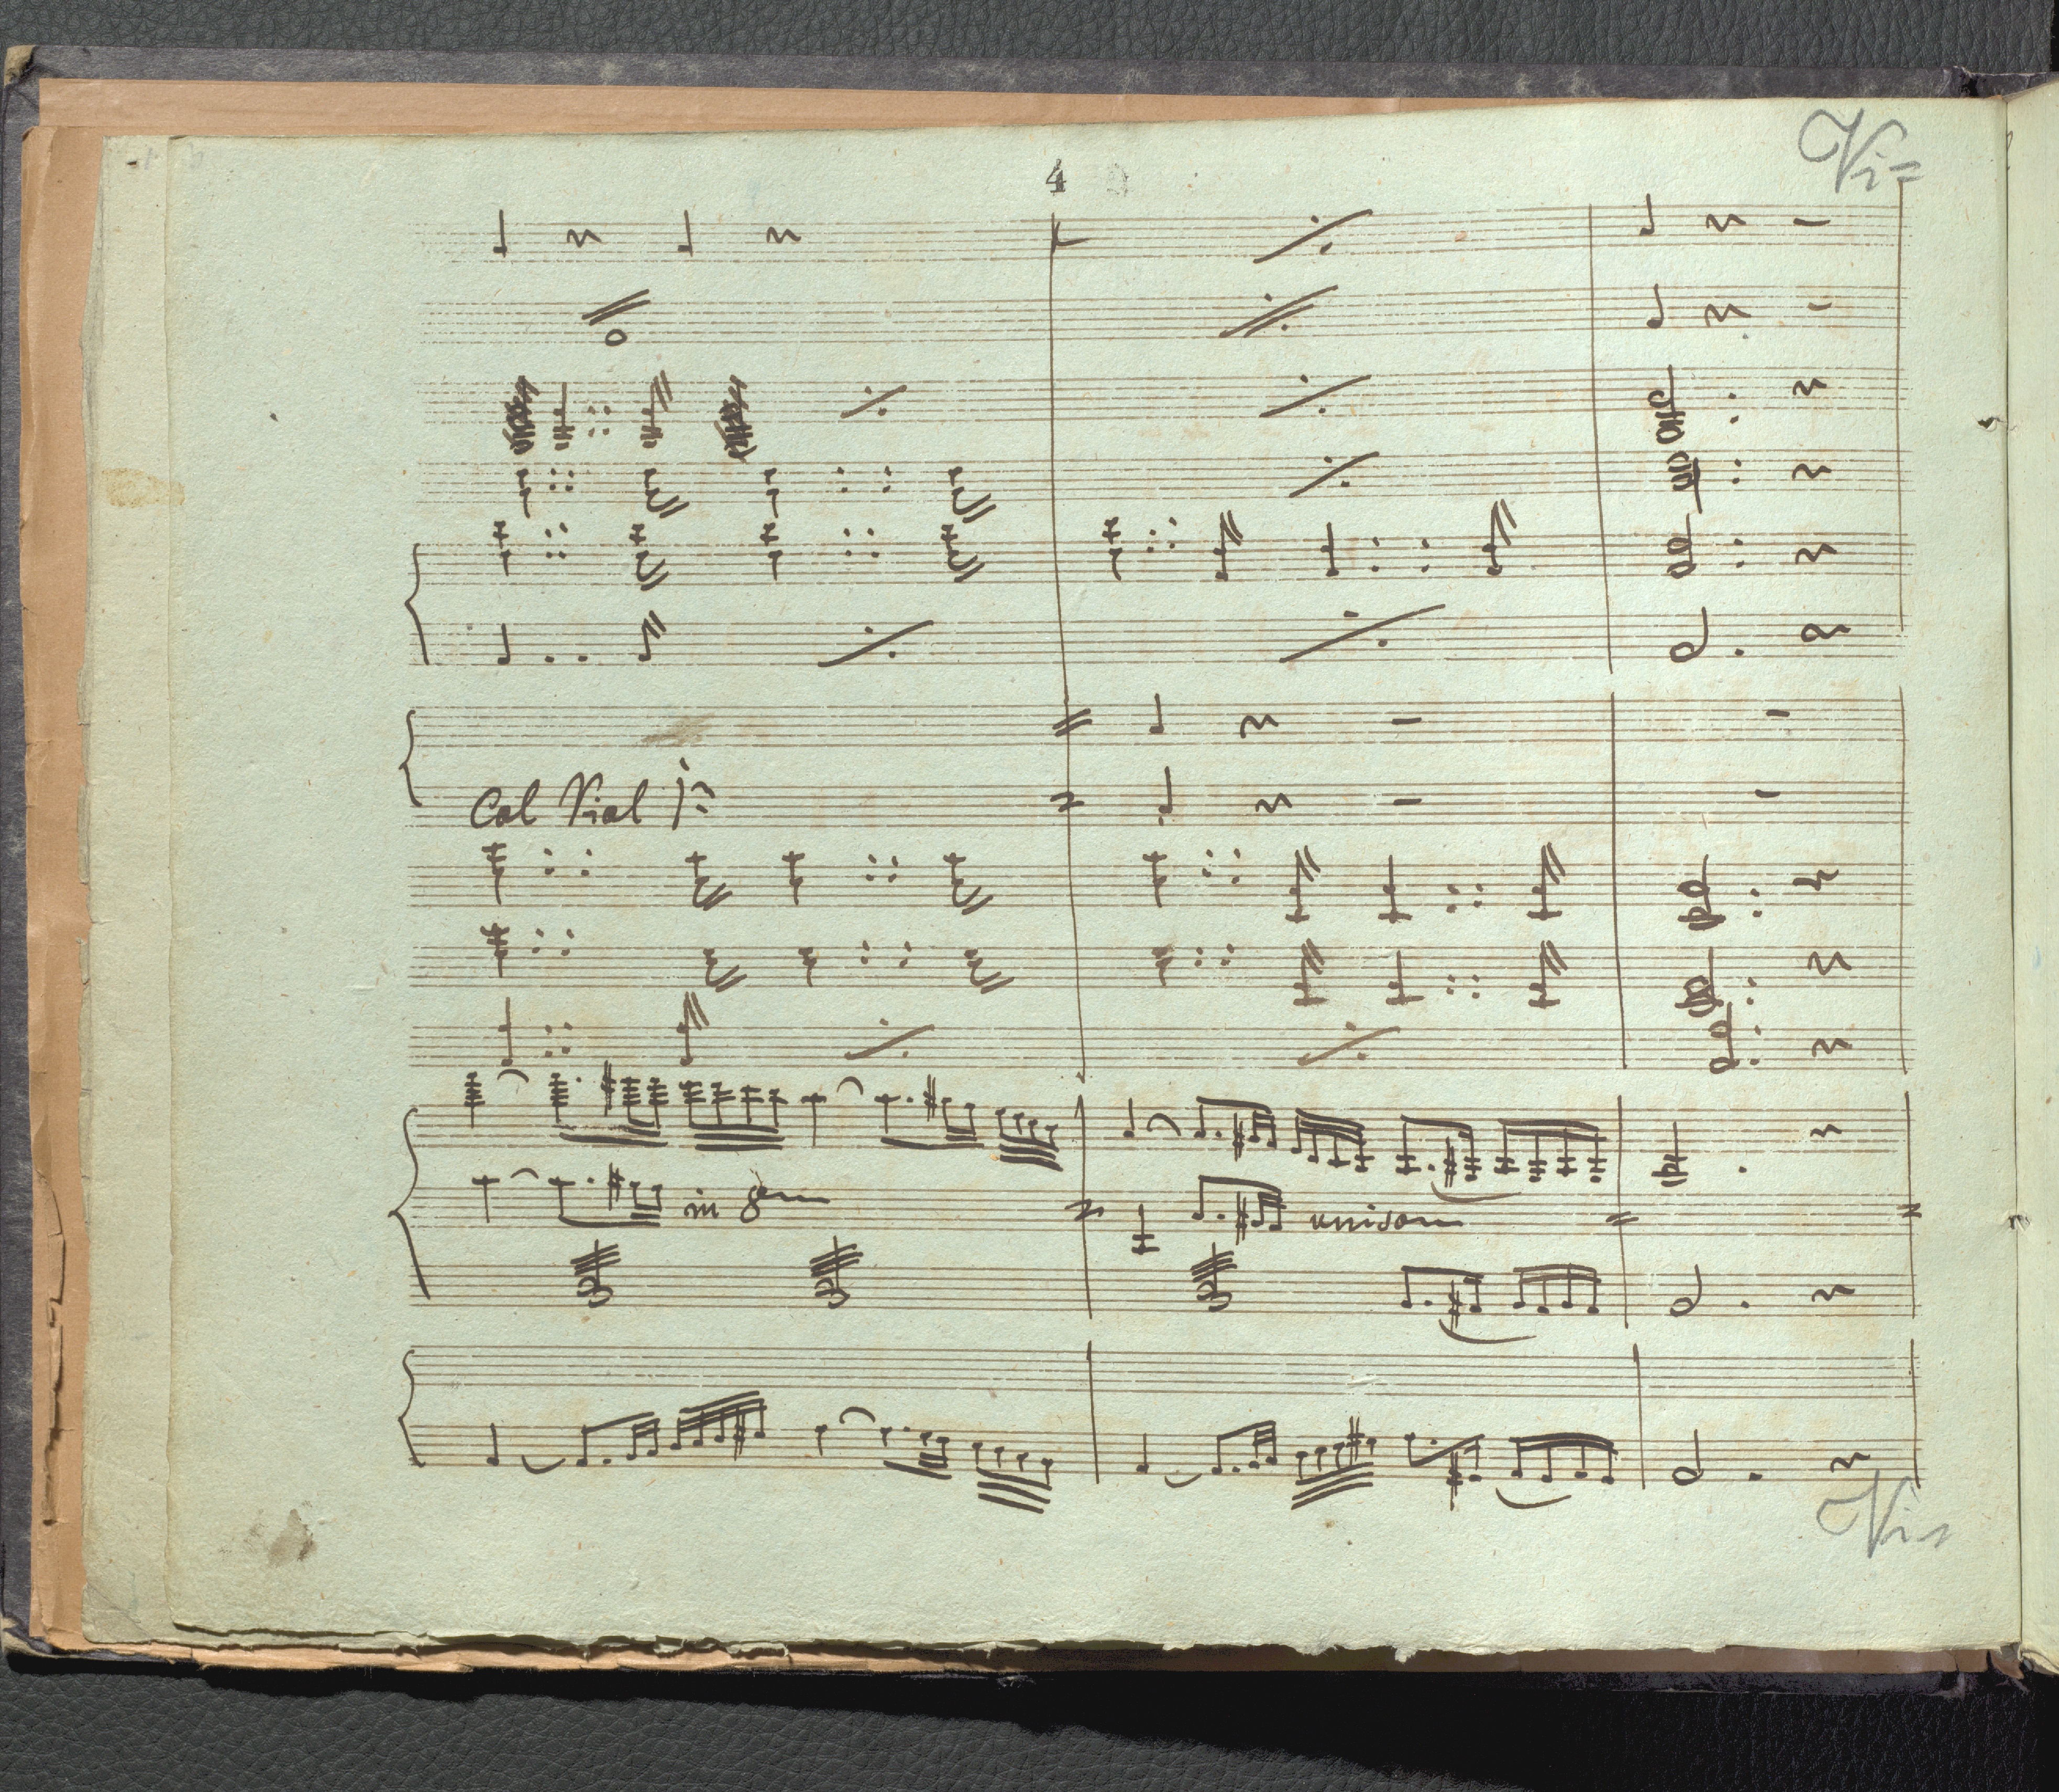 Vi=
4
Col Viol 1º
in 8va
unisono
Vi=